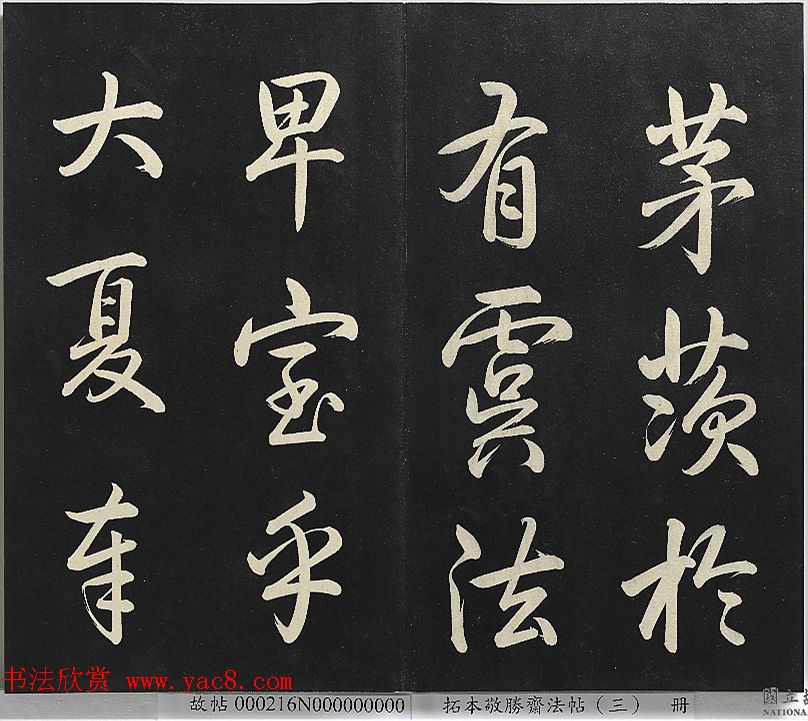 茅茨於
有虞法
卑室乎
大夏奉
书法欣赏 www.yac8.com
故帖 000216N000000000 拓本敬勝齋法帖（三） 冊
國立
NATIONA